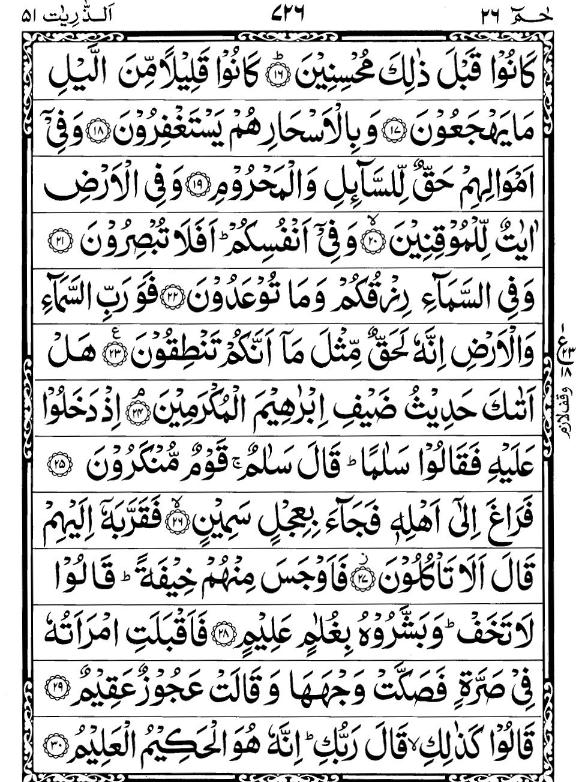 حٰمٓ ٢٦ ٧٢٦ اَلذّٰرِیٰت ٥١
كَانُوْا قَبْلَ ذٰلِكَ مُحْسِنِيْنَ ؕ﴿١٦﴾ كَانُوْا قَلِيْلًا مِّنَ الَّيْلِ
مَا يَهْجَعُوْنَ ﴿١٧﴾ وَبِالْاَسْحَارِ هُمْ يَسْتَغْفِرُوْنَ ﴿١٨﴾ وَفِيْۤ
اَمْوَالِهِمْ حَقٌّ لِّلسَّآىِٕلِ وَالْمَحْرُوْمِ ﴿١٩﴾ وَفِي الْاَرْضِ
اٰيٰتٌ لِّلْمُوْقِنِيْنَ ۙ﴿٢٠﴾ وَفِيْۤ اَنْفُسِكُمْ ؕ اَفَلَا تُبْصِرُوْنَ ﴿٢١﴾
وَفِي السَّمَآءِ رِزْقُكُمْ وَمَا تُوْعَدُوْنَ ﴿٢٢﴾ فَوَرَبِّ السَّمَآءِ
وَالْاَرْضِ اِنَّهٗ لَحَقٌّ مِّثْلَ مَاۤ اَنَّكُمْ تَنْطِقُوْنَ ﴿٢٣﴾ ع هَلْ
ع ٢٣ ١٨
اَتٰىكَ حَدِيْثُ ضَيْفِ اِبْرٰهِيْمَ الْمُكْرَمِيْنَ ۘ﴿٢٤﴾ اِذْ دَخَلُوْا
وقف لازم
عَلَيْهِ فَقَالُوْا سَلٰمًا ؕ قَالَ سَلٰمٌ ۚ قَوْمٌ مُّنْكَرُوْنَ ﴿٢٥﴾
فَرَاغَ اِلٰٓى اَهْلِهٖ فَجَآءَ بِعِجْلٍ سَمِيْنٍ ۙ﴿٢٦﴾ فَقَرَّبَهٗۤ اِلَيْهِمْ
قَالَ اَلَا تَاْكُلُوْنَ ؗ﴿٢٧﴾ فَاَوْجَسَ مِنْهُمْ خِيْفَةً ؕ قَالُوْا
لَا تَخَفْ ؕ وَبَشَّرُوْهُ بِغُلٰمٍ عَلِيْمٍ ﴿٢٨﴾ فَاَقْبَلَتِ امْرَاَتُهٗ
فِيْ صَرَّةٍ فَصَكَّتْ وَجْهَهَا وَقَالَتْ عَجُوْزٌ عَقِيْمٌ ﴿٢٩﴾
قَالُوْا كَذٰلِكِ ۙ قَالَ رَبُّكِ ؕ اِنَّهٗ هُوَ الْحَكِيْمُ الْعَلِيْمُ ﴿٣٠﴾